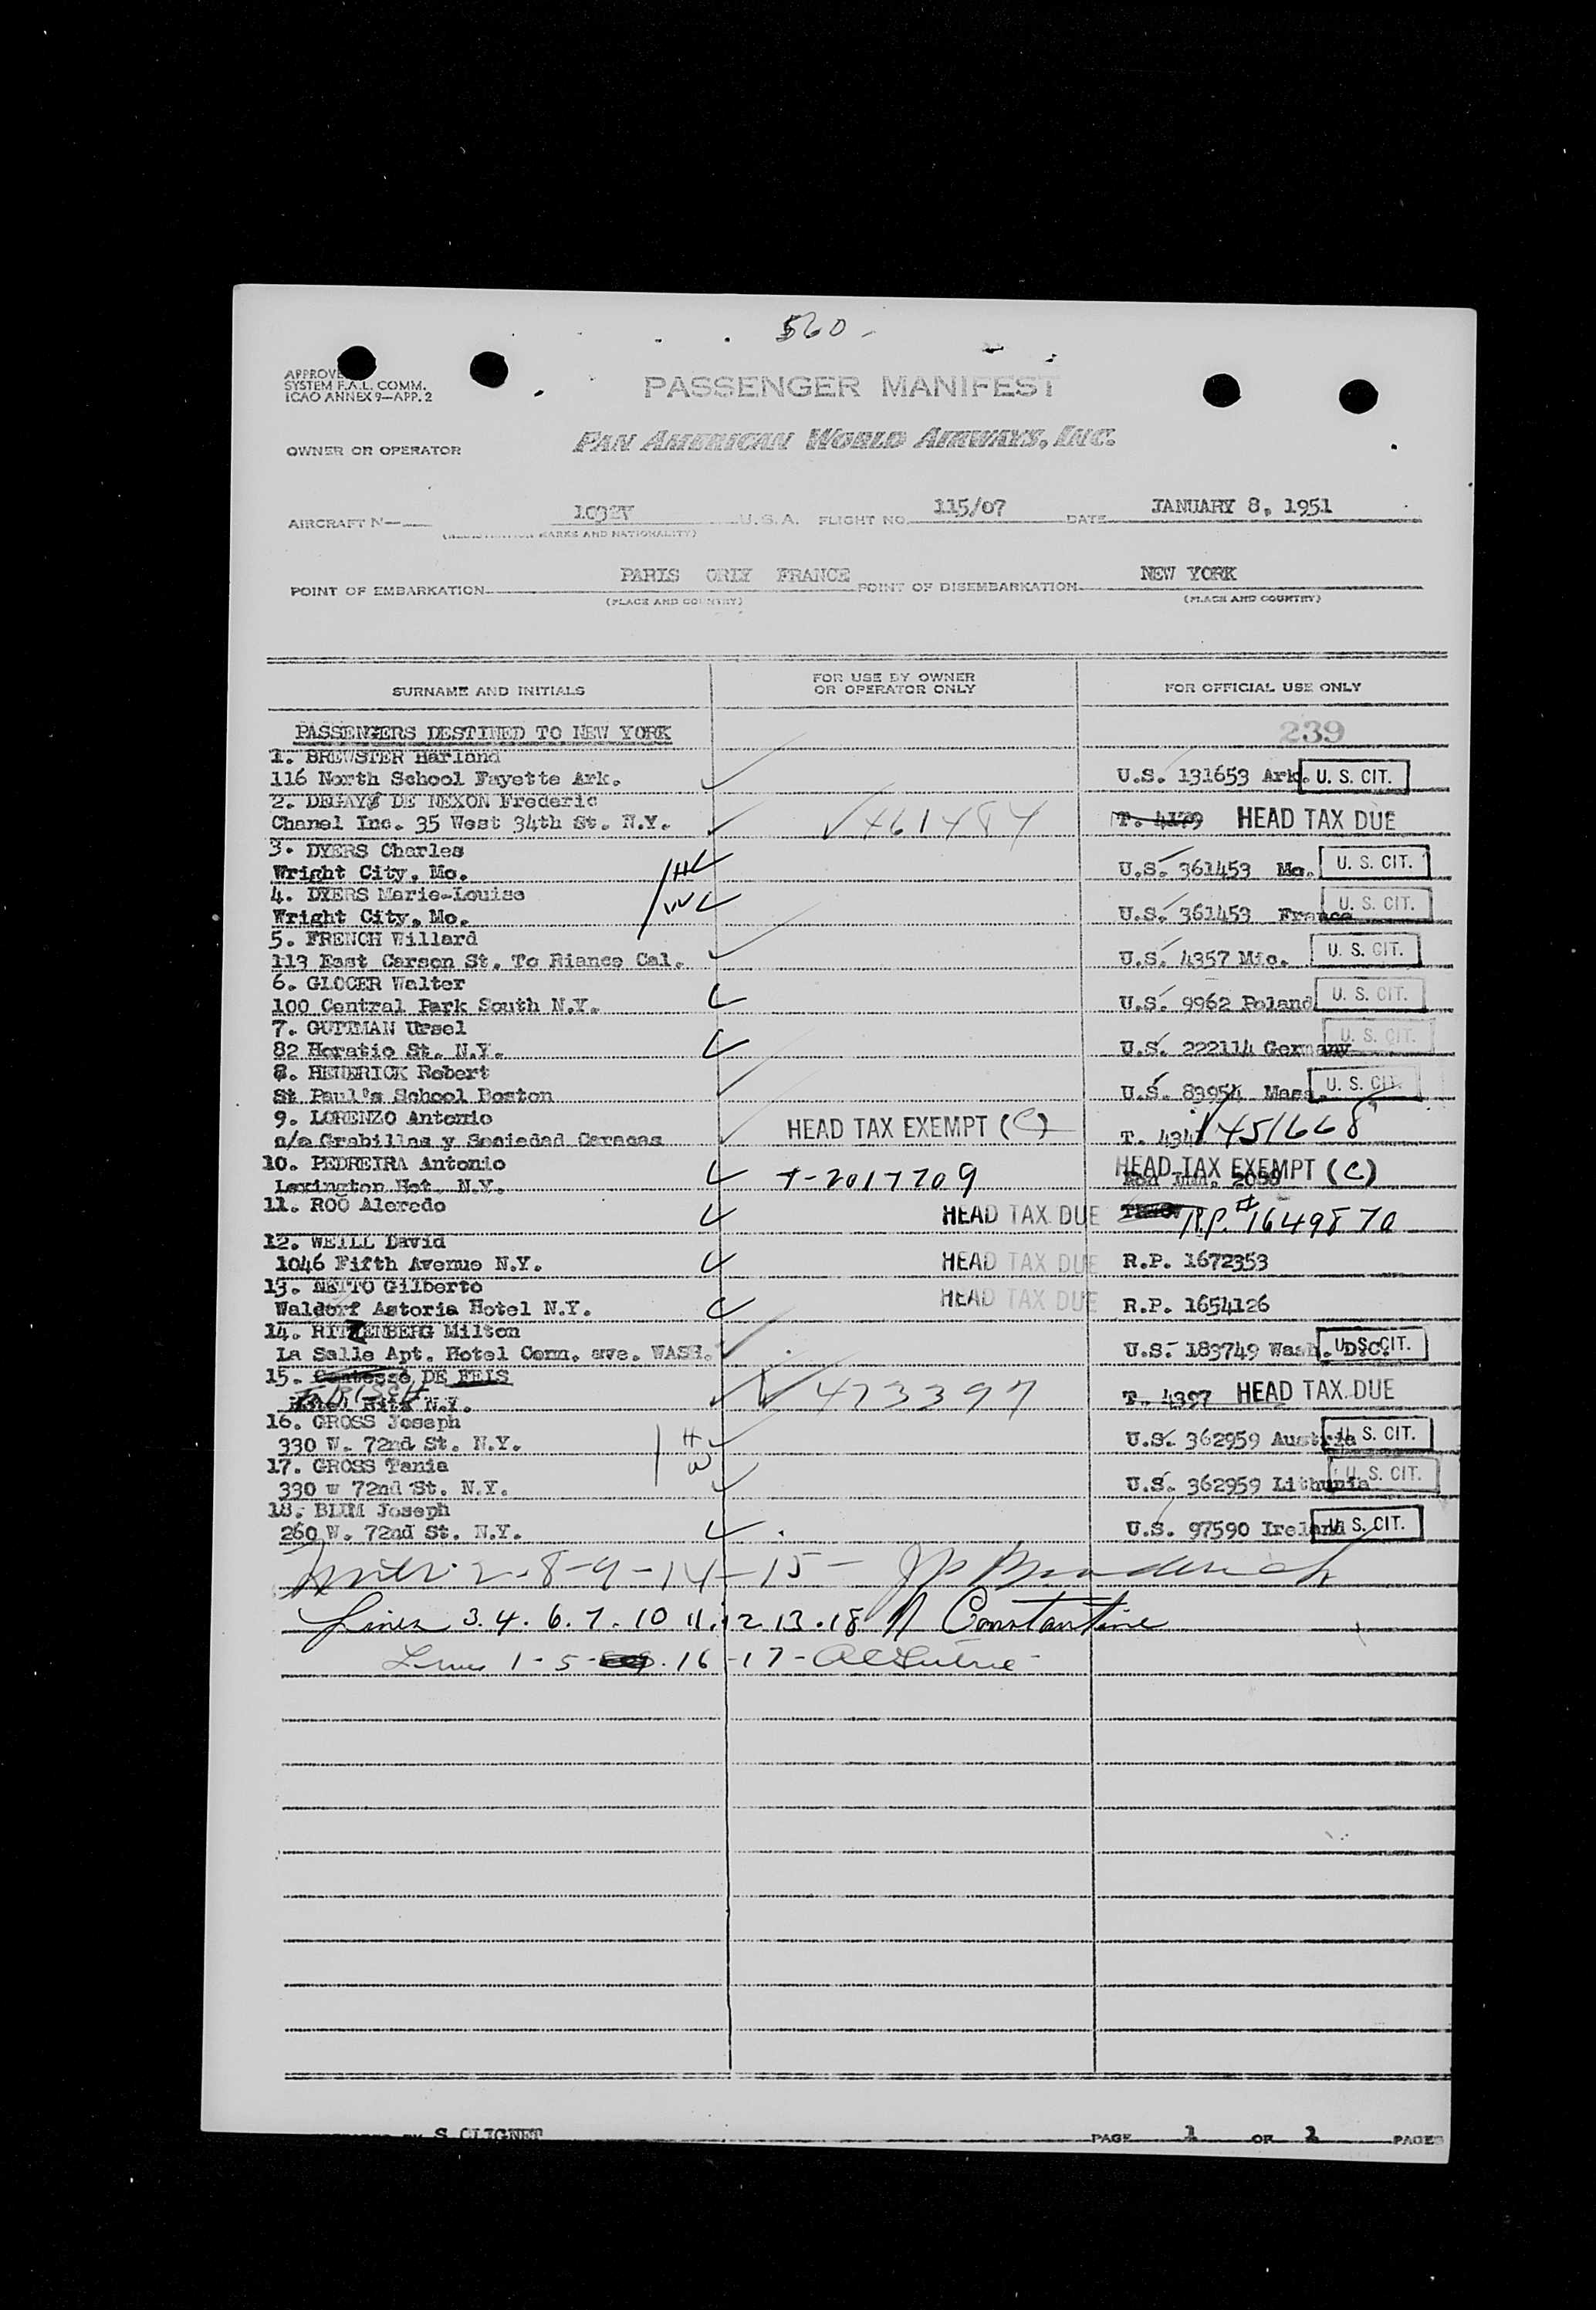 560-
APPROVE
SYSTEM F.A.L. COMM.
ICAO ANNEX 9—APP. 2
PASSENGER MANIFEST
OWNER OR OPERATOR
PAN AMERICAN WORLD AIRWAYS, INC.
AIRCRAFT N— 1032V U.S.A. FLIGHT NO. 115/07 DATE JANUARY 8, 1951
MARKS AND NATIONALITY)
POINT OF EMBARKATION PARIS ORLY FRANCE POINT OF DISEMBARKATION NEW YORK
(PLACE AND COUNTRY) (PLACE AND COUNTRY)
SURNAME AND INITIALS
FOR USE BY OWNER OR OPERATOR ONLY
FOR OFFICIAL USE ONLY
PASSENGERS DESTINED TO NEW YORK 239
1. BREWSTER Harland
116 North School Fayette Ark. U.S. 131653 Ark. U. S. CIT.
2. DEHAYS DE NEXON Frederic
Chanel Inc. 35 West 34th St. N.Y. 461484 T. 4179 HEAD TAX DUE
3. DYERS Charles
Wright City, Mo. H U.S. 361453 Mo. U. S. CIT.
4. DYERS Marie-Louise
Wright City, Mo. W U.S. 361453 France U. S. CIT.
5. FRENCH Willard
113 East Carson St. To Riance Cal. U.S. 4357 Mic. U. S. CIT.
6. GLOCER Walter
100 Central Park South N.Y. U.S. 9962 Poland U. S. CIT.
7. GUTTMAN Ursel
82 Horatio St. N.Y. U.S. 222114 Germany U. S. CIT.
8. HENERICK Robert
St Paul's School Boston U.S. 89954 Mass. U. S. CIT.
9. LORENZO Antonio
c/o Grabillas y Sociedad Caracas HEAD TAX EXEMPT (C) T. 434 1451668
10. PEDREIRA Antonio
Lexington Hot. N.Y. T-2017709 HEAD TAX EXEMPT (C)
11. ROO Alcredo
HEAD TAX DUE R.P. # 1649870
12. WEILL David
1046 Fifth Avenue N.Y. HEAD TAX DUE R.P. 1672353
13. NETTO Gilberto
Waldorf Astoria Hotel N.Y. HEAD TAX DUE R.P. 1654126
14. RITZENBERG Milton
La Salle Apt. Hotel Conn. ave. WASH. U.S. 189749 Wash. D.C. U. S. CIT.
15. Contesse DE FEIS
Hotel Ritz N.Y. 473397 T. 4397 HEAD TAX DUE
16. GROSS Joseph
330 W. 72nd St. N.Y. H U.S. 362959 Austria U. S. CIT.
17. GROSS Tania
330 w 72nd St. N.Y. W U.S. 362959 Lithunia U. S. CIT.
18. BLUM Joseph
260 W. 72nd St. N.Y. U.S. 97590 Ireland U. S. CIT.
2-8-9-14-15-
Lines 3.4.6.7.10 11.12.13.18 A Constantine
Lines 1-5- 16-17-
S CLIGNET PAGE 1 OF 1 PAGES